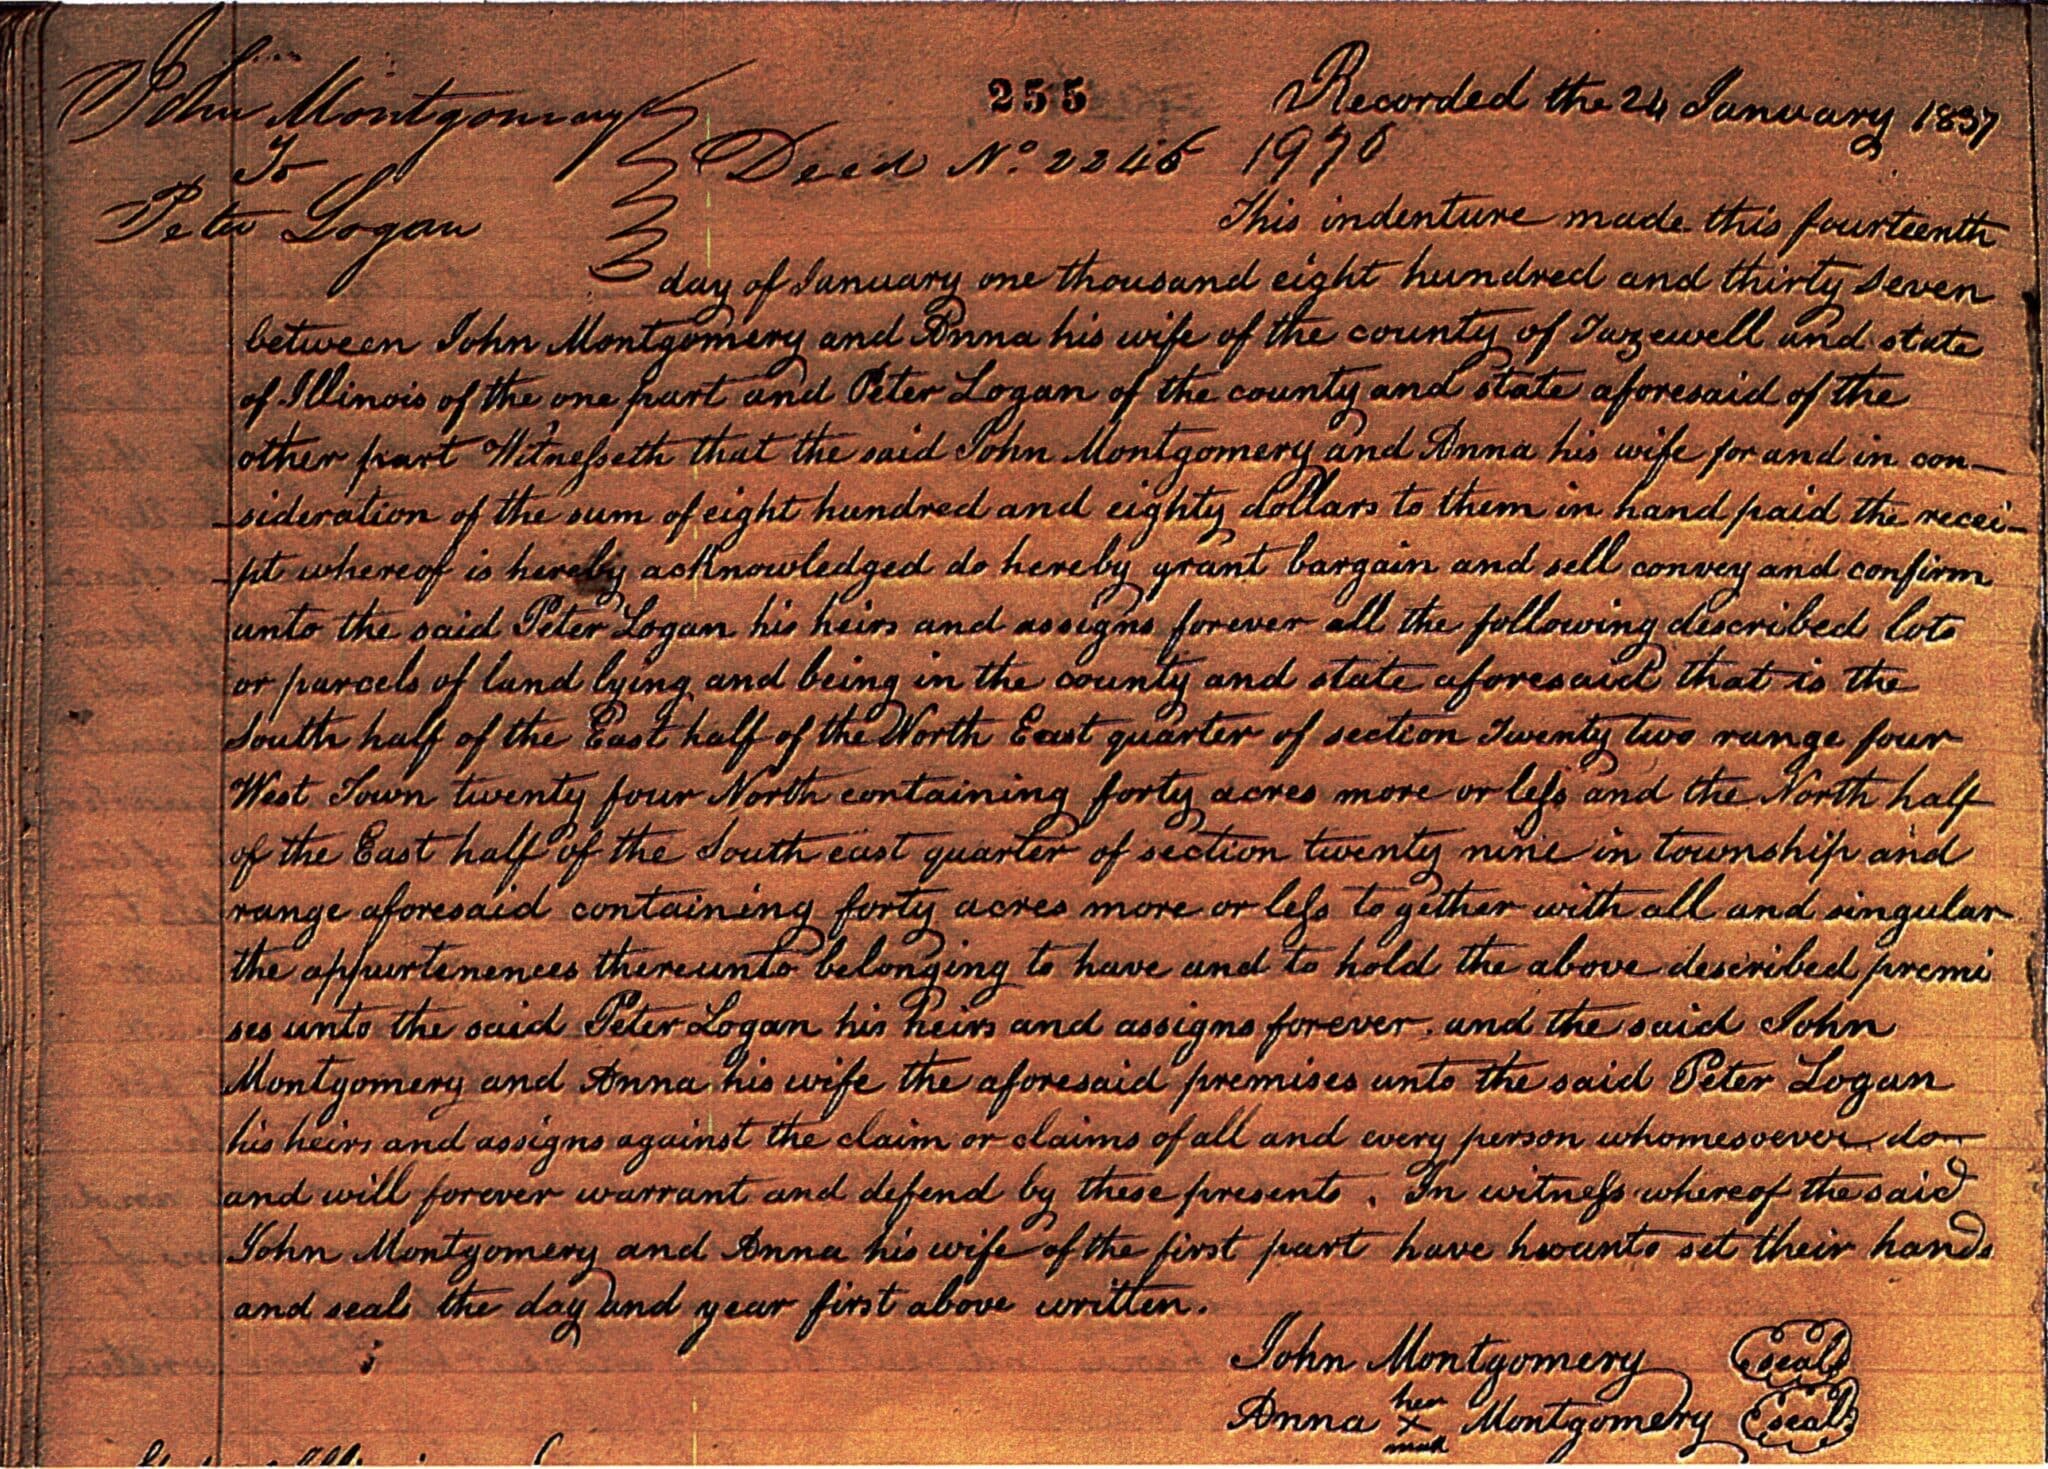 John Montgomery
To
Peter Logan
255
Deed No. 2246
Recorded the 24 January 1837
1976
This indenture made this fourteenth
day of January one thousand eight hundred and thirty seven
between John Montgomery and Anna his wife of the county of Tazewell and state
of Illinois of the one part and Peter Logan of the county and state aforesaid of the
other part Witnesseth that the said John Montgomery and Anna his wife for and in con-
sideration of the sum of eight hundred and eighty dollars to them in hand paid the recei-
pt whereof is hereby acknowledged do hereby grant bargain and sell convey and confirm
unto the said Peter Logan his heirs and assigns forever all the following described lots
or parcels of land lying and being in the county and state aforesaid that is the
South half of the East half of the North East quarter of section Twenty two range four
West Town twenty four North containing forty acres more or less and the North half
of the East half of the South east quarter of section twenty nine in township and
range aforesaid containing forty acres more or less together with all and singular
the appurtenences thereunto belonging to have and to hold the above described premi
ses unto the said Peter Logan his heirs and assigns forever. and the said John
Montgomery and Anna his wife the aforesaid premises unto the said Peter Logan
his heirs and assigns against the claim or claims of all and every person whomesoever do
and will forever warrant and defend by these presents. In witness whereof the said
John Montgomery and Anna his wife of the first part have hereunto set their hands
and seals the day and year first above written.
John Montgomery seal
Anna her X mark Montgomery seal